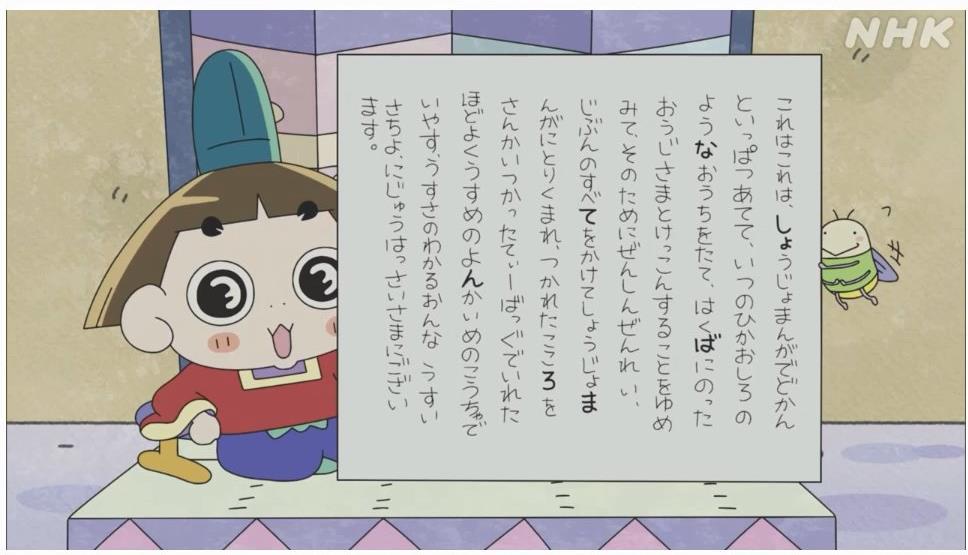 NHK
これはこれは、しょうじょまんがでどかん
といっぱつあてて、いつのひかおしろの
ようなおうちをたて、はくばにのった
おうじさまとけっこんすることをゆめ
みて、そのためにぜんしんぜんれい、
じぶんのすべてをかけてしょうじょま
んがにとりくまれ、つかれたこころを
さんかいつかったてぃーばっぐでいれた
ほどよくうすめのよんかいめのこうちゃで
いやす、うすさのわかるおんな うすい
さちよ、にじゅうはっさいさまにござい
ます。